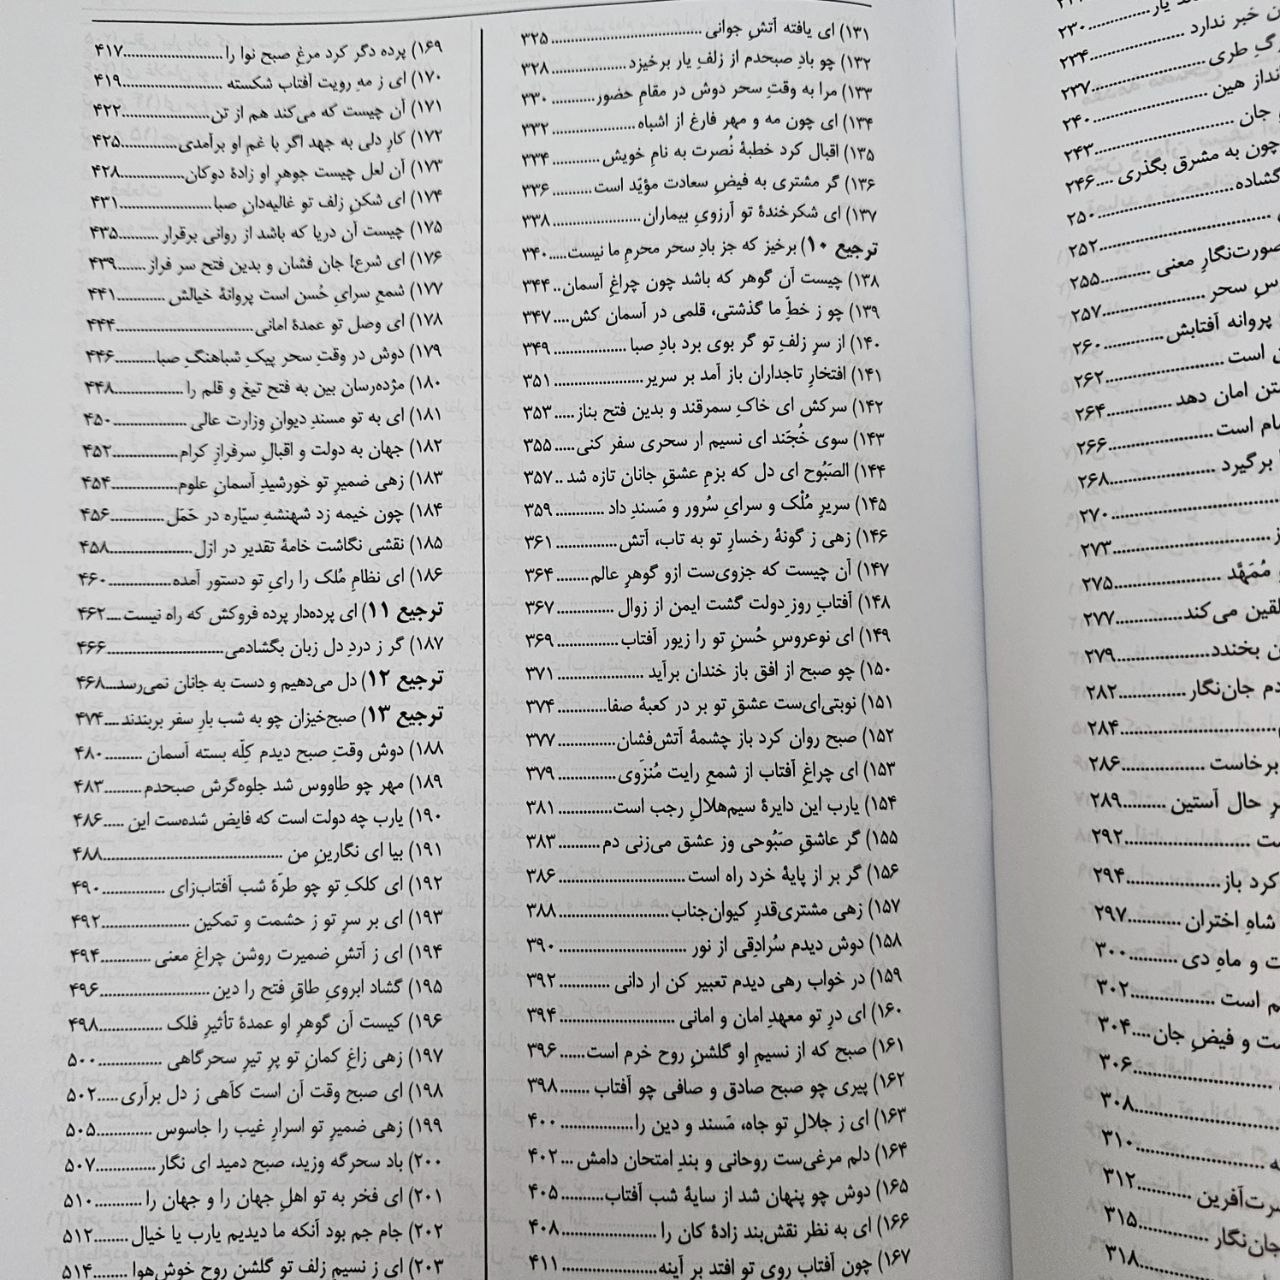 یار............۲۳۰
ن خبر ندارد............۲۳۴
گِ طری............۲۳۷
انداز هین............۲۴۰
و جان............۲۴۳
چون به مشرق بگذری....۲۴۶
گشاده............۲۵۰
............۲۵۲
صورت‌نگارِ معنی..........۲۵۵
سِ سحر............۲۵۷
پروانه آفتابش............۲۶۰
است............۲۶۲
ستن امان دهد............۲۶۴
ام است............۲۶۶
برگیرد............۲۶۸
............۲۷۰
............۲۷۳
مُمَهَّد............۲۷۵
لقین می‌کند............۲۷۷
ن بخندد............۲۷۹
دم جان‌نگار............۲۸۲
............۲۸۴
برخاست............۲۸۶
حال آستین.........۲۸۹
ست............۲۹۲
کرد باز............۲۹۴
شاهِ اختران............۲۹۷
ت و ماهِ دی............۳۰۰
م است............۳۰۲
ت و فیضِ جان....۳۰۴
............۳۰۶
............۳۰۸
............۳۱۰
رت‌آفرین............۳۱۲
جان‌نگار............۳۱۵
............۳۱۸
۱۳۱) ای یافته آتشِ جوانی............۳۲۵
۱۳۲) چو بادِ صبحدم از زلفِ یار برخیزد............۳۲۸
۱۳۳) مرا به وقتِ سحر دوش در مقامِ حضور............۳۳۰
۱۳۴) ای چون مه و مهر فارغ از اشباه............۳۳۲
۱۳۵) اقبال کرد خطبهٔ نُصرت به نامِ خویش............۳۳۴
۱۳۶) گر مشتری به فیضِ سعادت مؤیّد است............۳۳۶
۱۳۷) ای شکرخندهٔ تو آرزویِ بیماران............۳۳۸
ترجیع ۱۰) برخیز که جز بادِ سحر محرمِ ما نیست.....۳۴۰
۱۳۸) چیست آن گوهر که باشد چون چراغِ آسمان..۳۴۴
۱۳۹) چو ز خطِّ ما گذشتی، قلمی در آسمان کش....۳۴۷
۱۴۰) از سرِ زلفِ تو گر بوی برد بادِ صبا............۳۴۹
۱۴۱) افتخارِ تاجداران باز آمد بر سریر............۳۵۱
۱۴۲) سرکش ای خاکِ سمرقند و بدین فتح بناز.....۳۵۳
۱۴۳) سوی خُجَند ای نسیم ار سحری سفر کنی.....۳۵۵
۱۴۴) الصَبُوح ای دل که بزمِ عشقِ جانان تازه شد..۳۵۷
۱۴۵) سریرِ مُلْک و سرایِ سُرور و مَسندِ داد............۳۵۹
۱۴۶) زهی ز گونهٔ رخسارِ تو به تاب، آتش............۳۶۱
۱۴۷) آن چیست که جزوی‌ست ازو گوهرِ عالم........۳۶۴
۱۴۸) آفتابِ روزِ دولت گشت ایمن از زوال............۳۶۷
۱۴۹) ای نوعروسِ حُسنِ تو را زیور آفتاب............۳۶۹
۱۵۰) چو صبح از افق باز خندان برآید............۳۷۱
۱۵۱) نوبتی‌ای‌ست عشقِ تو بر در کعبهٔ صفا............۳۷۴
۱۵۲) صبح روان کرد باز چشمهٔ آتش‌فشان............۳۷۷
۱۵۳) ای چراغِ آفتاب از شمعِ رایت مُنزَوی............۳۷۹
۱۵۴) یارب این دایرهٔ سیم‌هلالِ رجب است............۳۸۱
۱۵۵) گر عاشقِ صَبُوحی وز عشق می‌زنی دم..........۳۸۳
۱۵۶) گر بر از پایهٔ خرد راه است............۳۸۶
۱۵۷) زهی مشتری‌قدرِ کیوان‌جناب............۳۸۸
۱۵۸) دوش دیدم سُرادِقی از نور............۳۹۰
۱۵۹) در خواب رهی دیدم تعبیر کن ار دانی............۳۹۲
۱۶۰) ای درِ تو معهدِ امان و امانی............۳۹۴
۱۶۱) صبح که از نسیمِ او گلشنِ روح خرم است......۳۹۶
۱۶۲) پیری چو صبح صادق و صافی چو آفتاب.......۳۹۸
۱۶۳) ای ز جلالِ تو جاه، مَسند و دین را............۴۰۰
۱۶۴) دلم مرغی‌ست روحانی و بندِ امتحان دامش...۴۰۲
۱۶۵) دوش چو پنهان شد از سایهٔ شب آفتاب..........۴۰۵
۱۶۶) ای به نظر نقش‌بند زادهٔ کان را............۴۰۸
۱۶۷) چون آفتاب روی تو افتد بر آینه............۴۱۱
۱۶۹) پرده دگر کرد مرغِ صبح نوا را............۴۱۷
۱۷۰) ای ز مهِ رویت آفتاب شکسته............۴۱۹
۱۷۱) آن چیست که می‌کند هم از تن............۴۲۲
۱۷۲) کارِ دلی به جهد اگر با غمِ او برآمدی............۴۲۵
۱۷۳) آن لعل چیست جوهرِ او زادهٔ دوکان............۴۲۸
۱۷۴) ای شکنِ زلف تو غالیه‌دانِ صبا............۴۳۱
۱۷۵) چیست آن دریا که باشد از روانی برقرار..........۴۳۵
۱۷۶) ای شرع! جان فشان و بدین فتح سر فراز......۴۳۹
۱۷۷) شمعِ سرایِ حُسن است پروانهٔ خیالش............۴۴۱
۱۷۸) ای وصلِ تو عمدهٔ امانی............۴۴۴
۱۷۹) دوش در وقتِ سحر پیکِ شباهنگِ صبا.........۴۴۶
۱۸۰) مژده‌رسان بین به فتح تیغ و قلم را............۴۴۸
۱۸۱) ای به تو مسندِ دیوانِ وزارت عالی............۴۵۰
۱۸۲) جهان به دولت و اقبالِ سرفرازِ کرام............۴۵۲
۱۸۳) زهی ضمیرِ تو خورشیدِ آسمانِ علوم............۴۵۴
۱۸۴) چون خیمه زد شهنشهِ سیّاره در حَمَل............۴۵۶
۱۸۵) نقشی نگاشت خامهٔ تقدیر در ازل............۴۵۸
۱۸۶) ای نظامِ مُلک را رایِ تو دستور آمده............۴۶۰
ترجیع ۱۱) ای پرده‌دار پرده فروکش که راه نیست....۴۶۲
۱۸۷) گر ز دردِ دل زبان بگشادمی............۴۶۶
ترجیع ۱۲) دل می‌دهیم و دست به جانان نمی‌رسد...۴۶۸
ترجیع ۱۳) صبح‌خیزان چو به شب بارِ سفر بربندند....۴۷۴
۱۸۸) دوش وقتِ صبح دیدم کِلّه بسته آسمان........۴۸۰
۱۸۹) مهر چو طاووس شد جلوه‌گرش صبحدم.........۴۸۳
۱۹۰) یارب چه دولت است که فایض شده‌ست این.....۴۸۶
۱۹۱) بیا ای نگارینِ من............۴۸۸
۱۹۲) ای کلکِ تو چو طرّهٔ شب آفتاب‌زای............۴۹۰
۱۹۳) ای بر سرِ تو ز حشمت و تمکین............۴۹۲
۱۹۴) ای ز آتشِ ضمیرت روشن چراغِ معنی............۴۹۴
۱۹۵) گشاد ابرویِ طاقِ فتح را دین............۴۹۶
۱۹۶) کیست آن گوهرِ او عمدهٔ تأثیرِ فلک............۴۹۸
۱۹۷) زهی زاغِ کمانِ تو پرِ تیرِ سحرگاهی............۵۰۰
۱۹۸) ای صبح وقت آن است کآهی ز دل برآری.....۵۰۲
۱۹۹) زهی ضمیرِ تو اسرارِ غیب را جاسوس............۵۰۵
۲۰۰) باد سحرگه وزید، صبح دمید ای نگار............۵۰۷
۲۰۱) ای فخر به تو اهلِ جهان را و جهان را............۵۱۰
۲۰۲) جامِ جم بود آنکه ما دیدیم یارب یا خیال........۵۱۲
۲۰۳) ای ز نسیمِ زلف تو گلشنِ روح خوش‌هوا.......۵۱۴